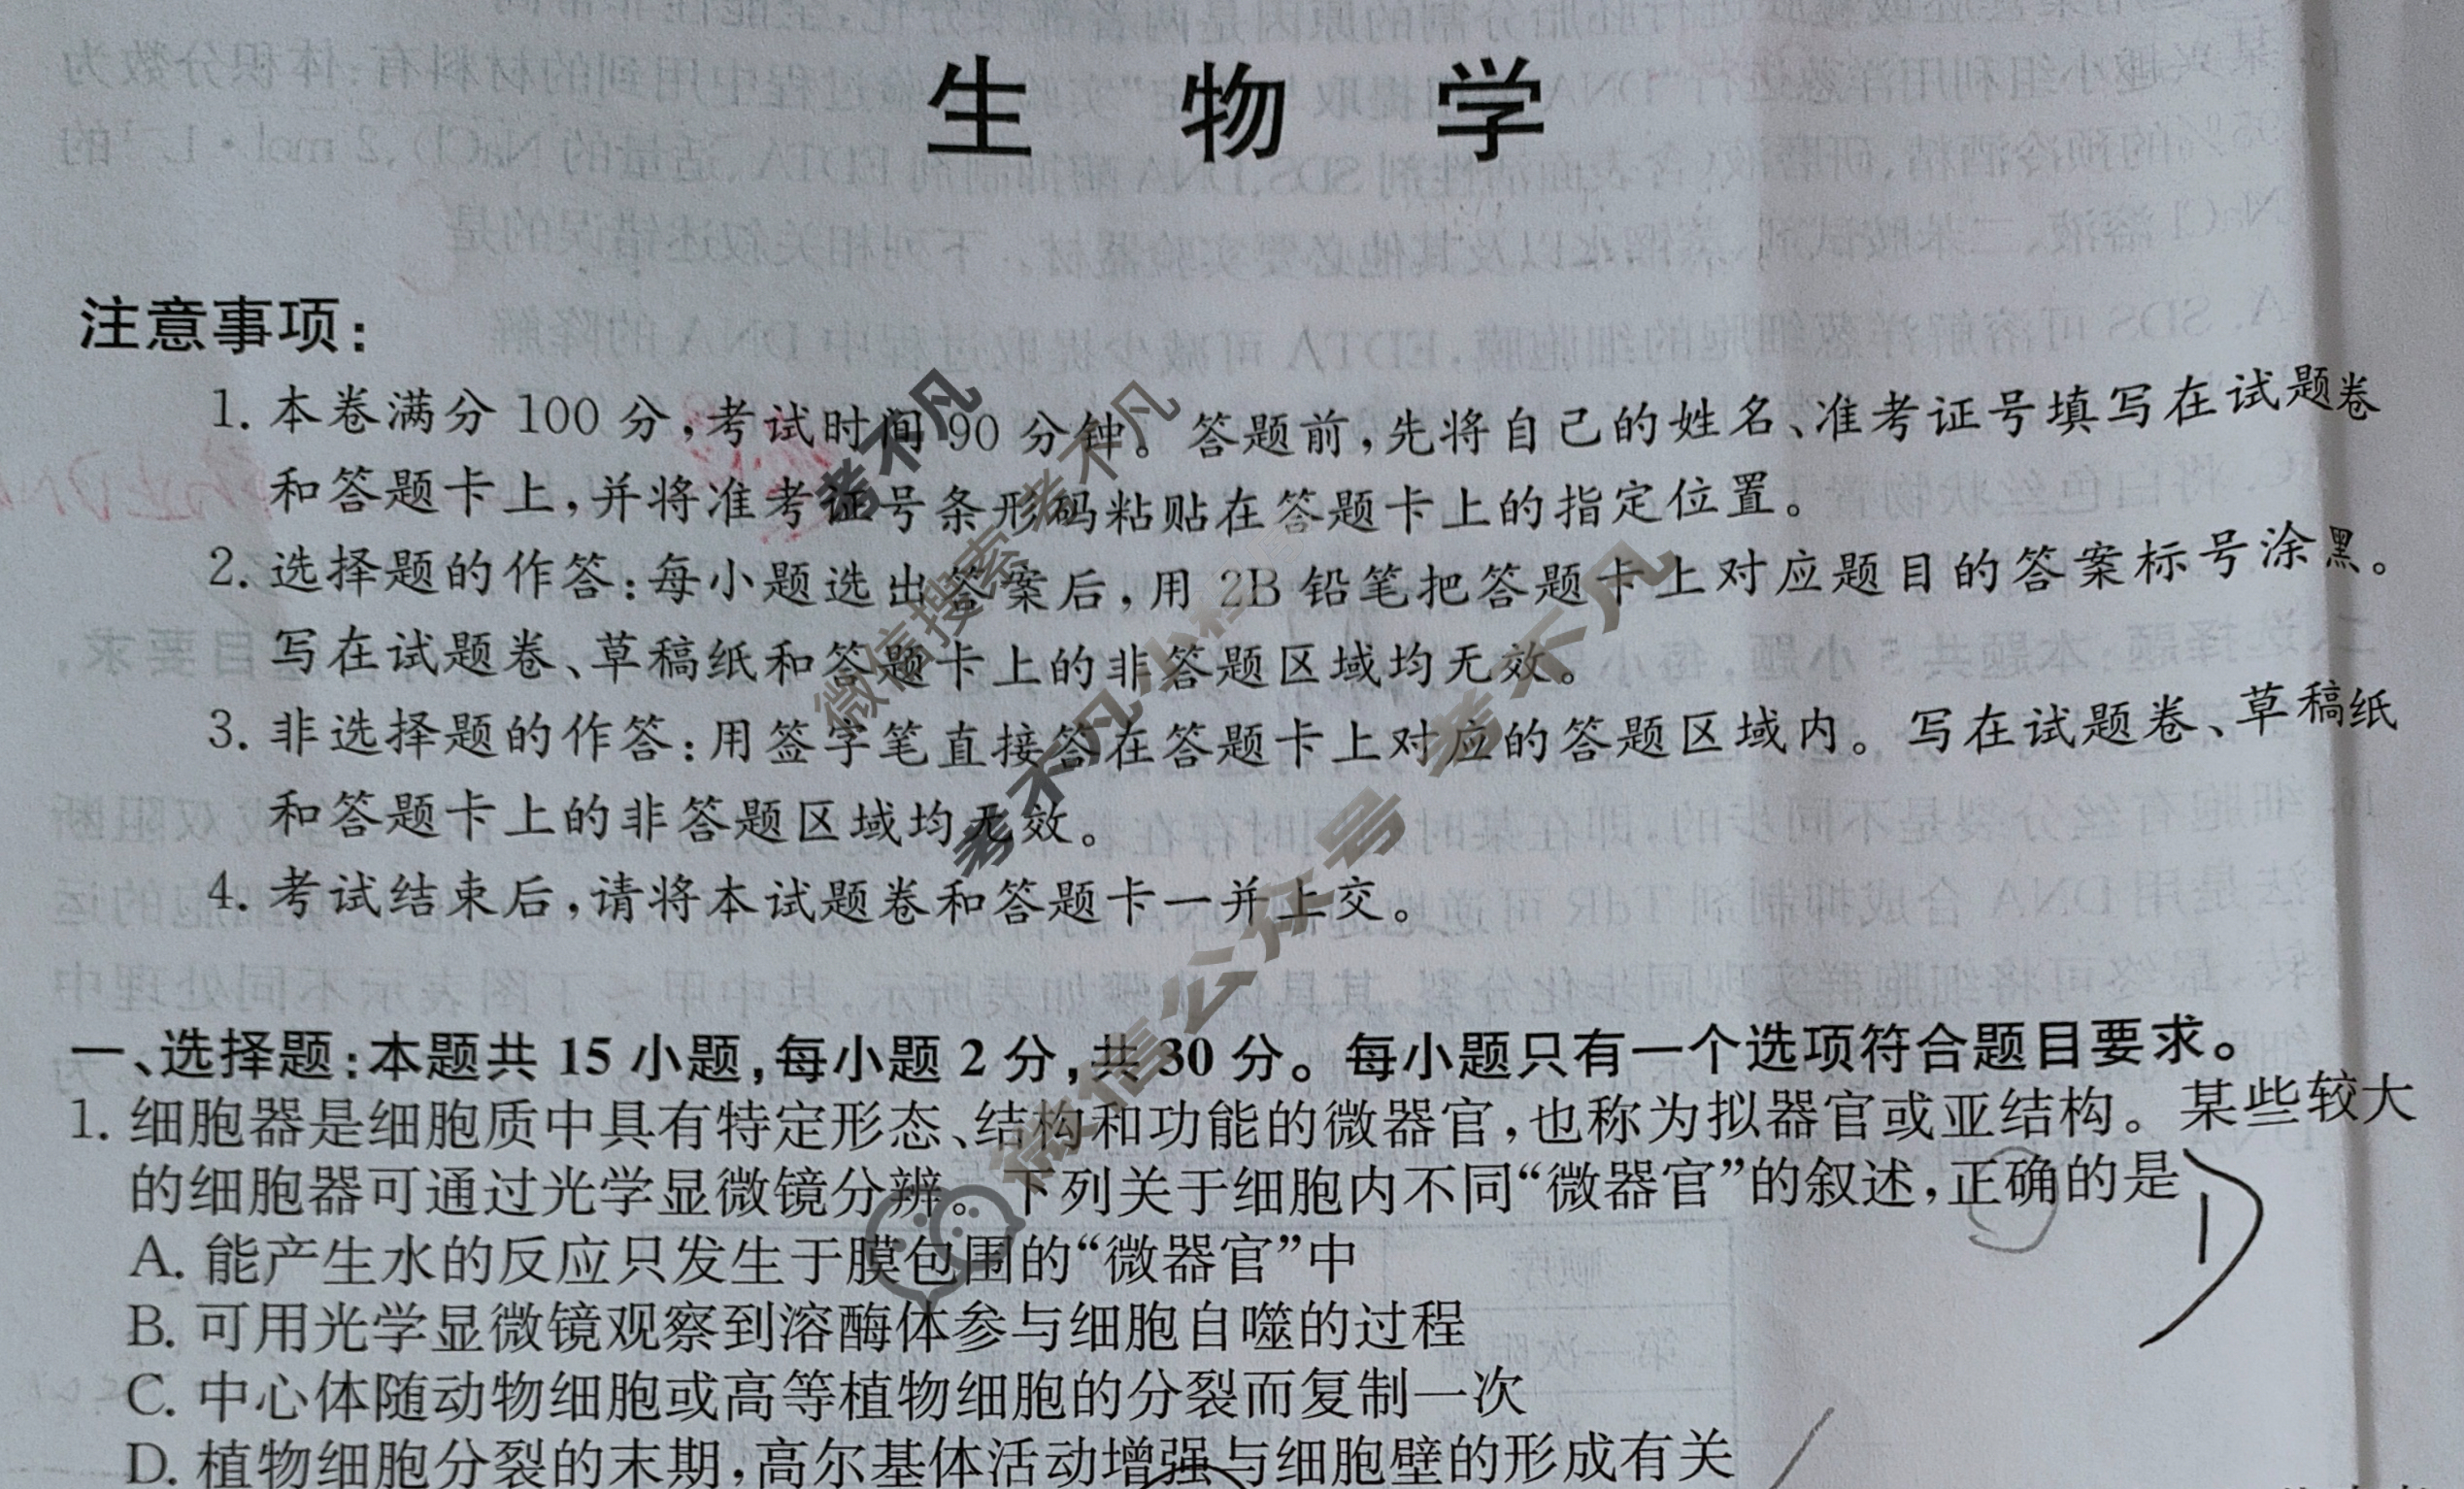 生 物 学
注意事项：
1. 本卷满分 100 分，考试时间 90 分钟。答题前，先将自己的姓名、准考证号填写在试题卷
和答题卡上，并将准考证号条形码粘贴在答题卡上的指定位置。
2. 选择题的作答：每小题选出答案后，用 2B 铅笔把答题卡上对应题目的答案标号涂黑。
写在试题卷、草稿纸和答题卡上的非答题区域均无效。
3. 非选择题的作答：用签字笔直接答在答题卡上对应的答题区域内。写在试题卷、草稿纸
和答题卡上的非答题区域均无效。
4. 考试结束后，请将本试题卷和答题卡一并上交。
考不凡
微信搜索 考不凡
考不凡小程序
微信公众号 考不凡
一、选择题：本题共 15 小题，每小题 2 分，共 30 分。每小题只有一个选项符合题目要求。
1. 细胞器是细胞质中具有特定形态、结构和功能的微器官，也称为拟器官或亚结构。某些较大
的细胞器可通过光学显微镜分辨。下列关于细胞内不同“微器官”的叙述，正确的是
D
A. 能产生水的反应只发生于膜包围的“微器官”中
B. 可用光学显微镜观察到溶酶体参与细胞自噬的过程
C. 中心体随动物细胞或高等植物细胞的分裂而复制一次
D. 植物细胞分裂的末期，高尔基体活动增强与细胞壁的形成有关